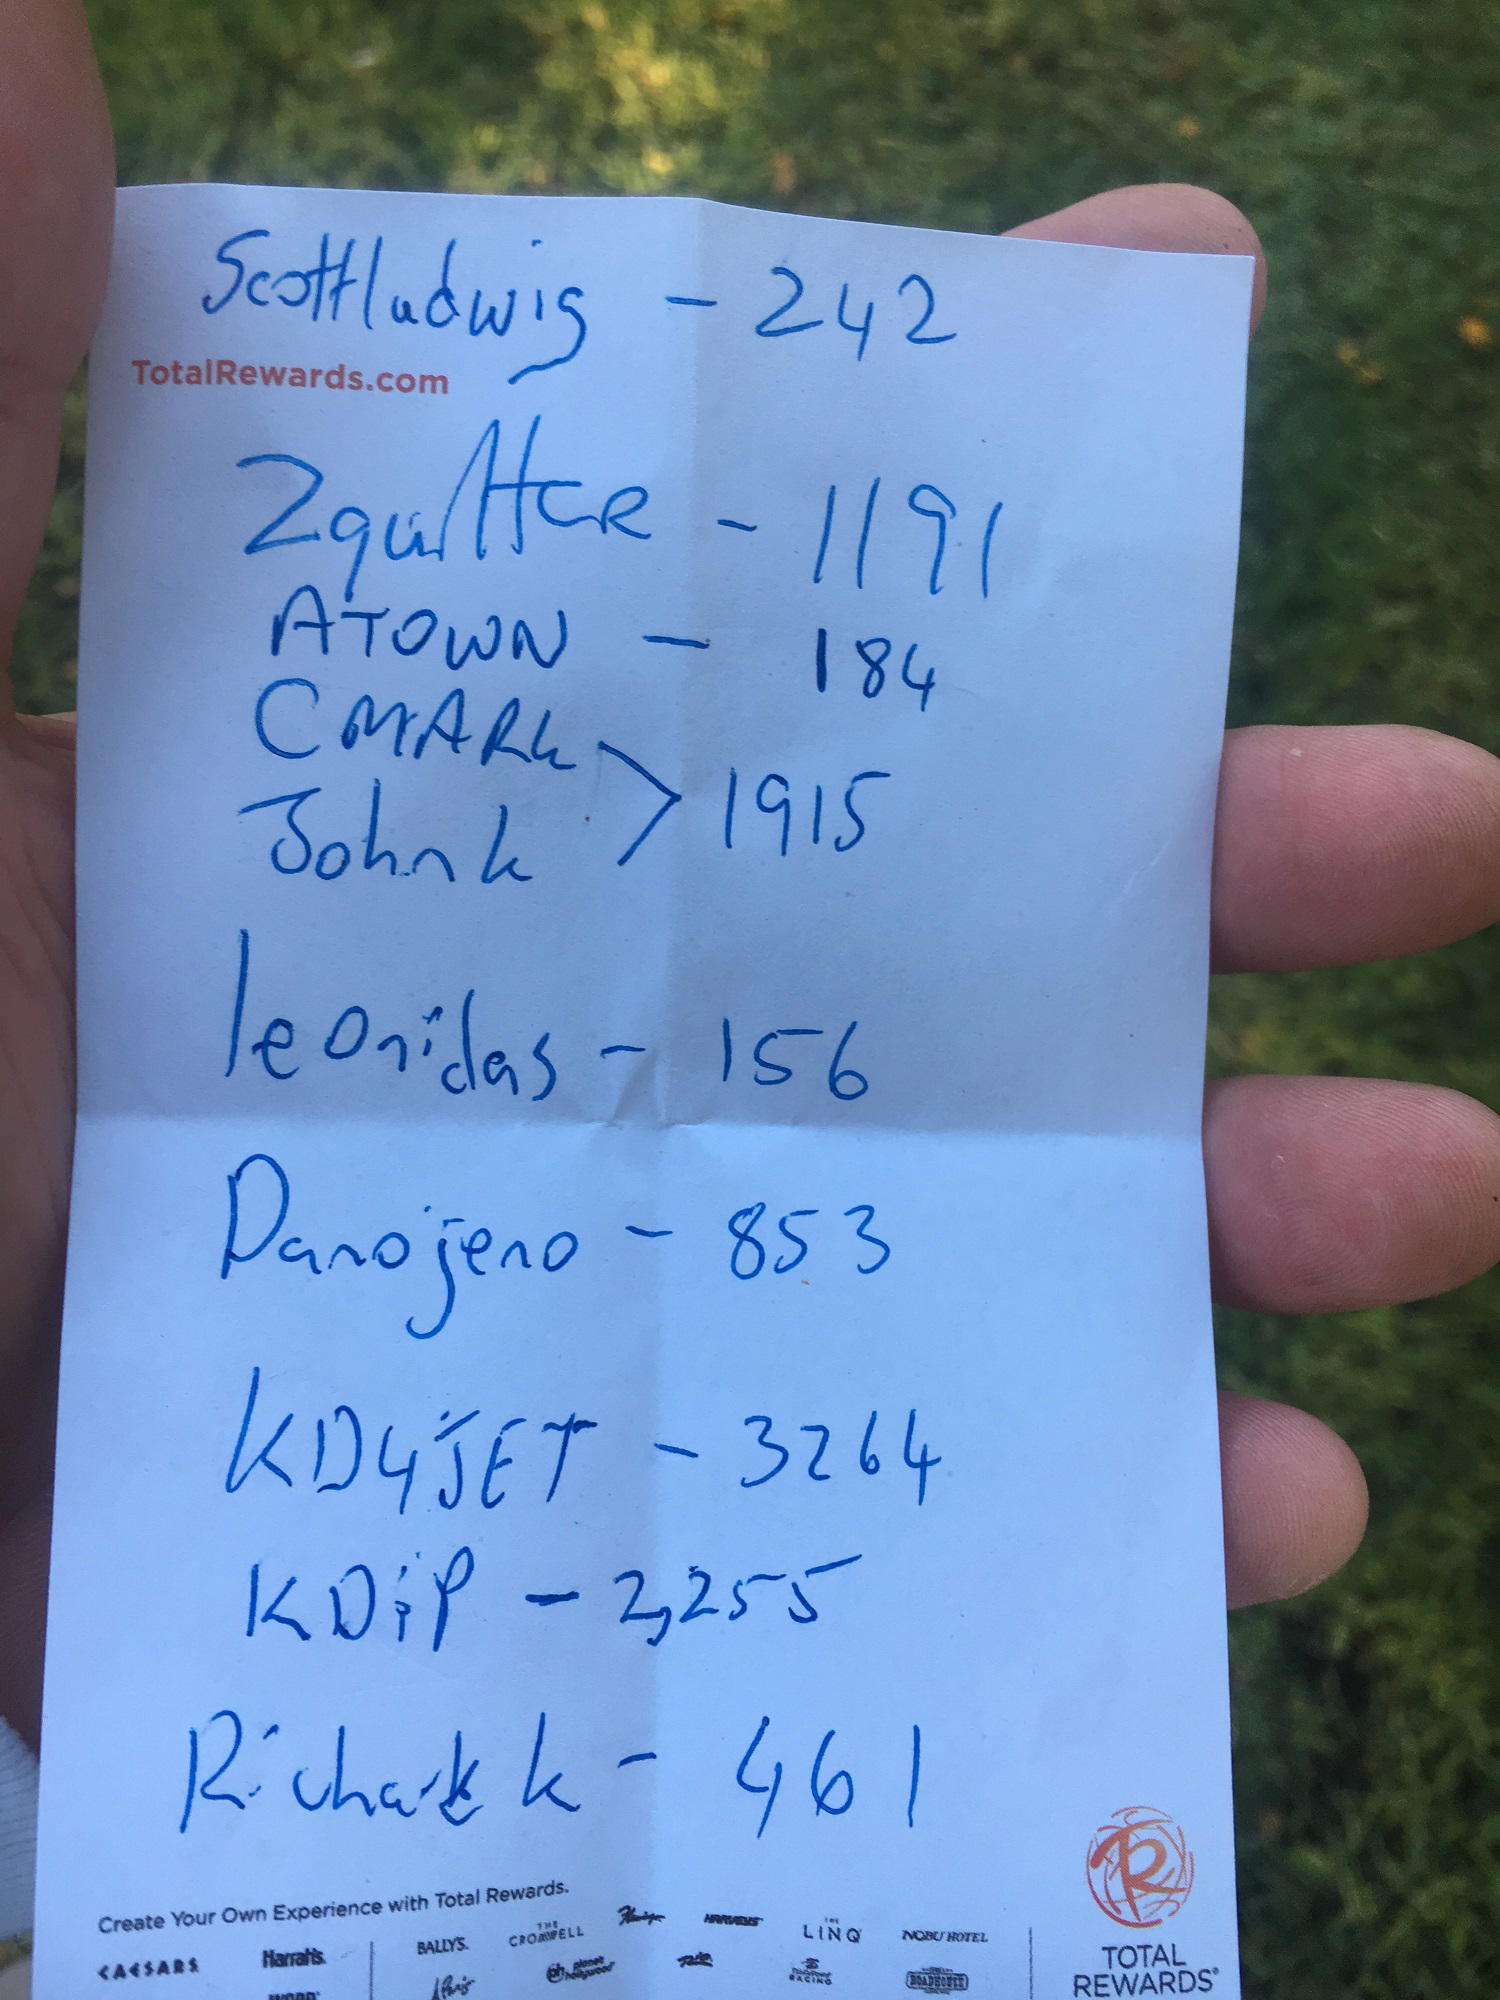 Scottludwig - 242
TotalRewards.com
Zquilter - 1191
ATOWN - 184
CMARK
Johnk > 1915
leonidas - 156
Danojeno - 853
KD4JET - 3264
KDiP - 2,255
Richark k - 461
Create Your Own Experience with Total Rewards.
CAESARS Harrah's BALLY'S THE CROMWELL Flamingo HARVEYS THE LINQ NOBU HOTEL
Paris ph planet hollywood Rio RACING ROADHOUSE
TR
TOTAL
REWARDS®